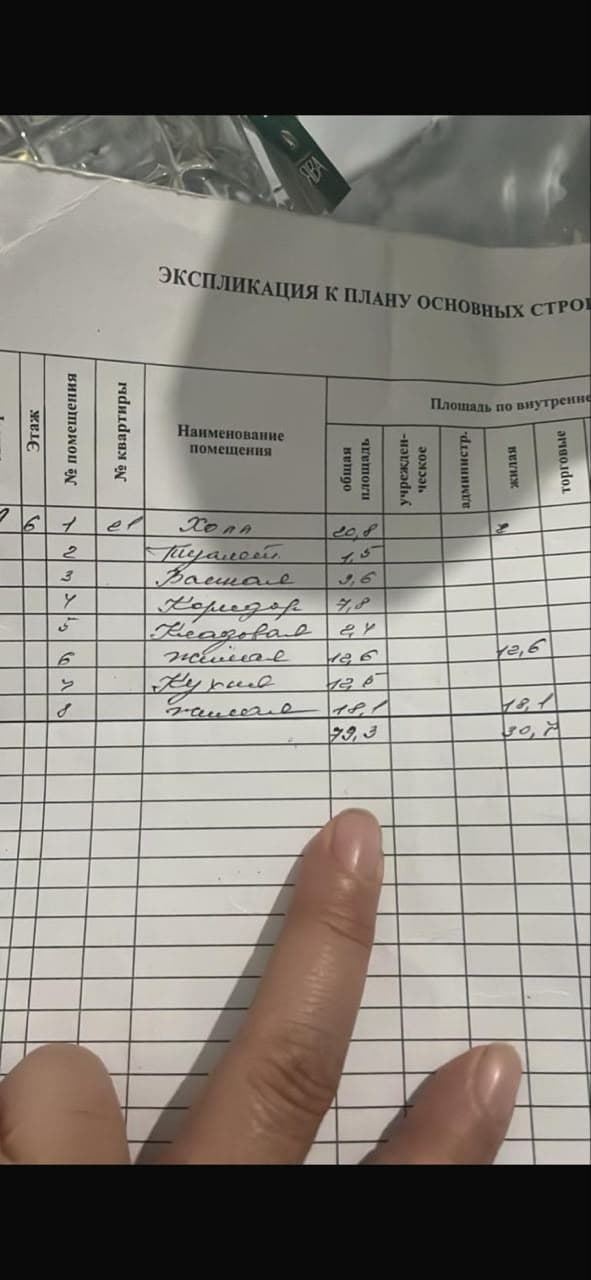 ЯВА
ЭКСПЛИКАЦИЯ К ПЛАНУ ОСНОВНЫХ СТРОЕ
Этаж
№ помещения
№ квартиры
Наименование
помещения
Площадь по внутренне
общая
площадь
учрежден-
ческое
администр.
жилая
торговые
6 1 Холл 20,8
2 Туалет 1,5
3 Ванная 3,6
4 Коридор 7,8
5 Кладовая 2,4
6 жилая 12,6 12,6
7 Кухня 12,5
8 жилая 18,1 18,1
79,3 30,7